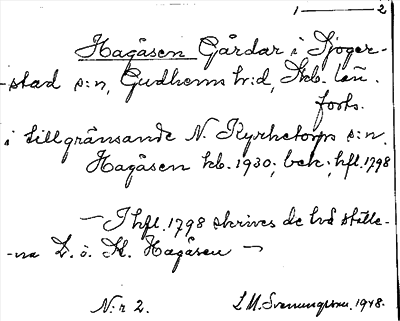 1 —— 2
Hagåsen Gårdar i Sjoger-
-stad s:n, Gudhems h:d, Skb. län.
forts.
i tillgränsande N. Kyrketorps s:n.
Hagåsen kb. 1930; bek.; hfl. 1798
— I hfl. 1798 skrives de två ställe-
-na L. o. St. Hagåsen —
N:r 2.
L M. Svenungsson. 1948.